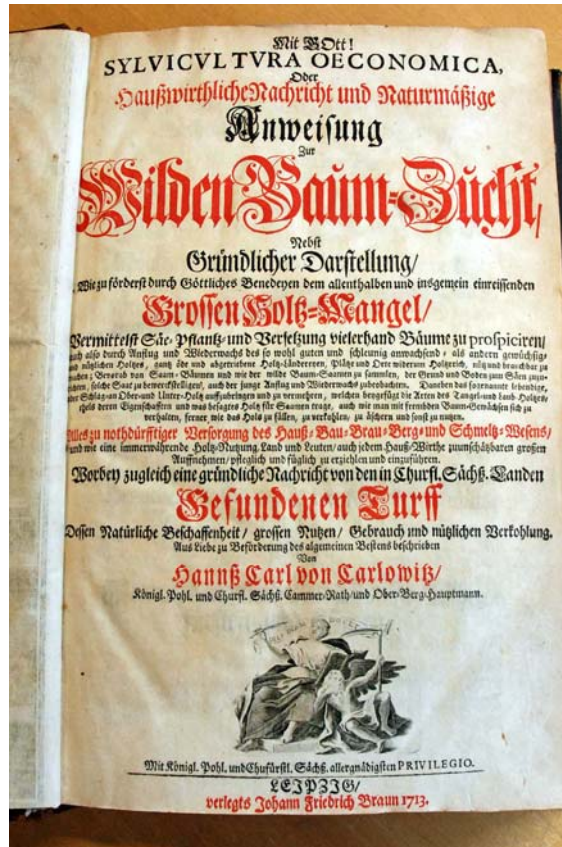 Mit GOtt!
SYLVICULTURA OECONOMICA,
Oder
Haußwirthliche Nachricht und Naturmäßige
Anweisung
Zur
Wilden Baum-Zucht/
Nebst
Gründlicher Darstellung/
Wie zu förderst durch Göttliches Benedeyen dem allenthalben und insgemein einreissenden
Grossen Holtz-Mangel/
Vermittelst Säe- Pflantz- und Versetzung vielerhand Bäume zu prospiciren/
auch also durch Anflug und Wiederwachs des so wohl guten und schleunig anwachsend, als andern gewüchsig-
und nützlichen Holtzes, gantz öde und abgetriebene Holtz-Ländereyen, Plätze und Orte widerum Holtzreich, nütz und brauchbar zu
machen; Bevorab von Saam-Bäumen und wie der wilde Baum-Saamen zu sammlen, der Grund und Boden zum Säen zuzu-
richten, solche Saat zu bewerckstelligen, auch der junge Anflug und Wiederwachs zubeobachten. Daneben das sogenannte lebendige,
oder Schlag-an Ober- und Unter-Holtz auffzubringen und zu vermehren, welchen beygefügt die Arten des Tangel- und Laub-Holtzes,
theils deren Eigenschafften und was besagtes Holtz für Saamen trage, auch wie man mit frembden Baum-Gewächsen sich zu
verhalten, ferner wie das Holtz zu fällen, zu verkohlen, zu äschern und sonst zu nutzen.
Alles zu nothdürfftiger Versorgung des Hauß- Bau- Brau- Berg- und Schmeltz-Wesens/
und wie eine immerwährende Holtz-Nutzung, Land und Leuten/ auch jedem Hauß-Wirthe zu unschätzbaren grossen
Auffnehmen/ pfleglich und füglich zu erziehlen und einzuführen.
Worbey zugleich eine gründliche Nachricht von den in Churfl. Sächß. Landen
Gefundenen Turff
Dessen Natürliche Beschaffenheit/ grossen Nutzen/ Gebrauch und nützlichen Verkohlung.
Aus Liebe zu Beförderung des algemeinen Bestens beschrieben
Von
Hannß Carl von Carlowitz/
Königl. Pohl. und Churfl. Sächß. Cammer-Rath/ und Ober-Berg-Hauptmann.
Mit Königl. Pohl. und Chufürstl. Sächß. allergnädigsten PRIVILEGIO.
LEIPZIG/
verlegts Johann Friedrich Braun 1713.